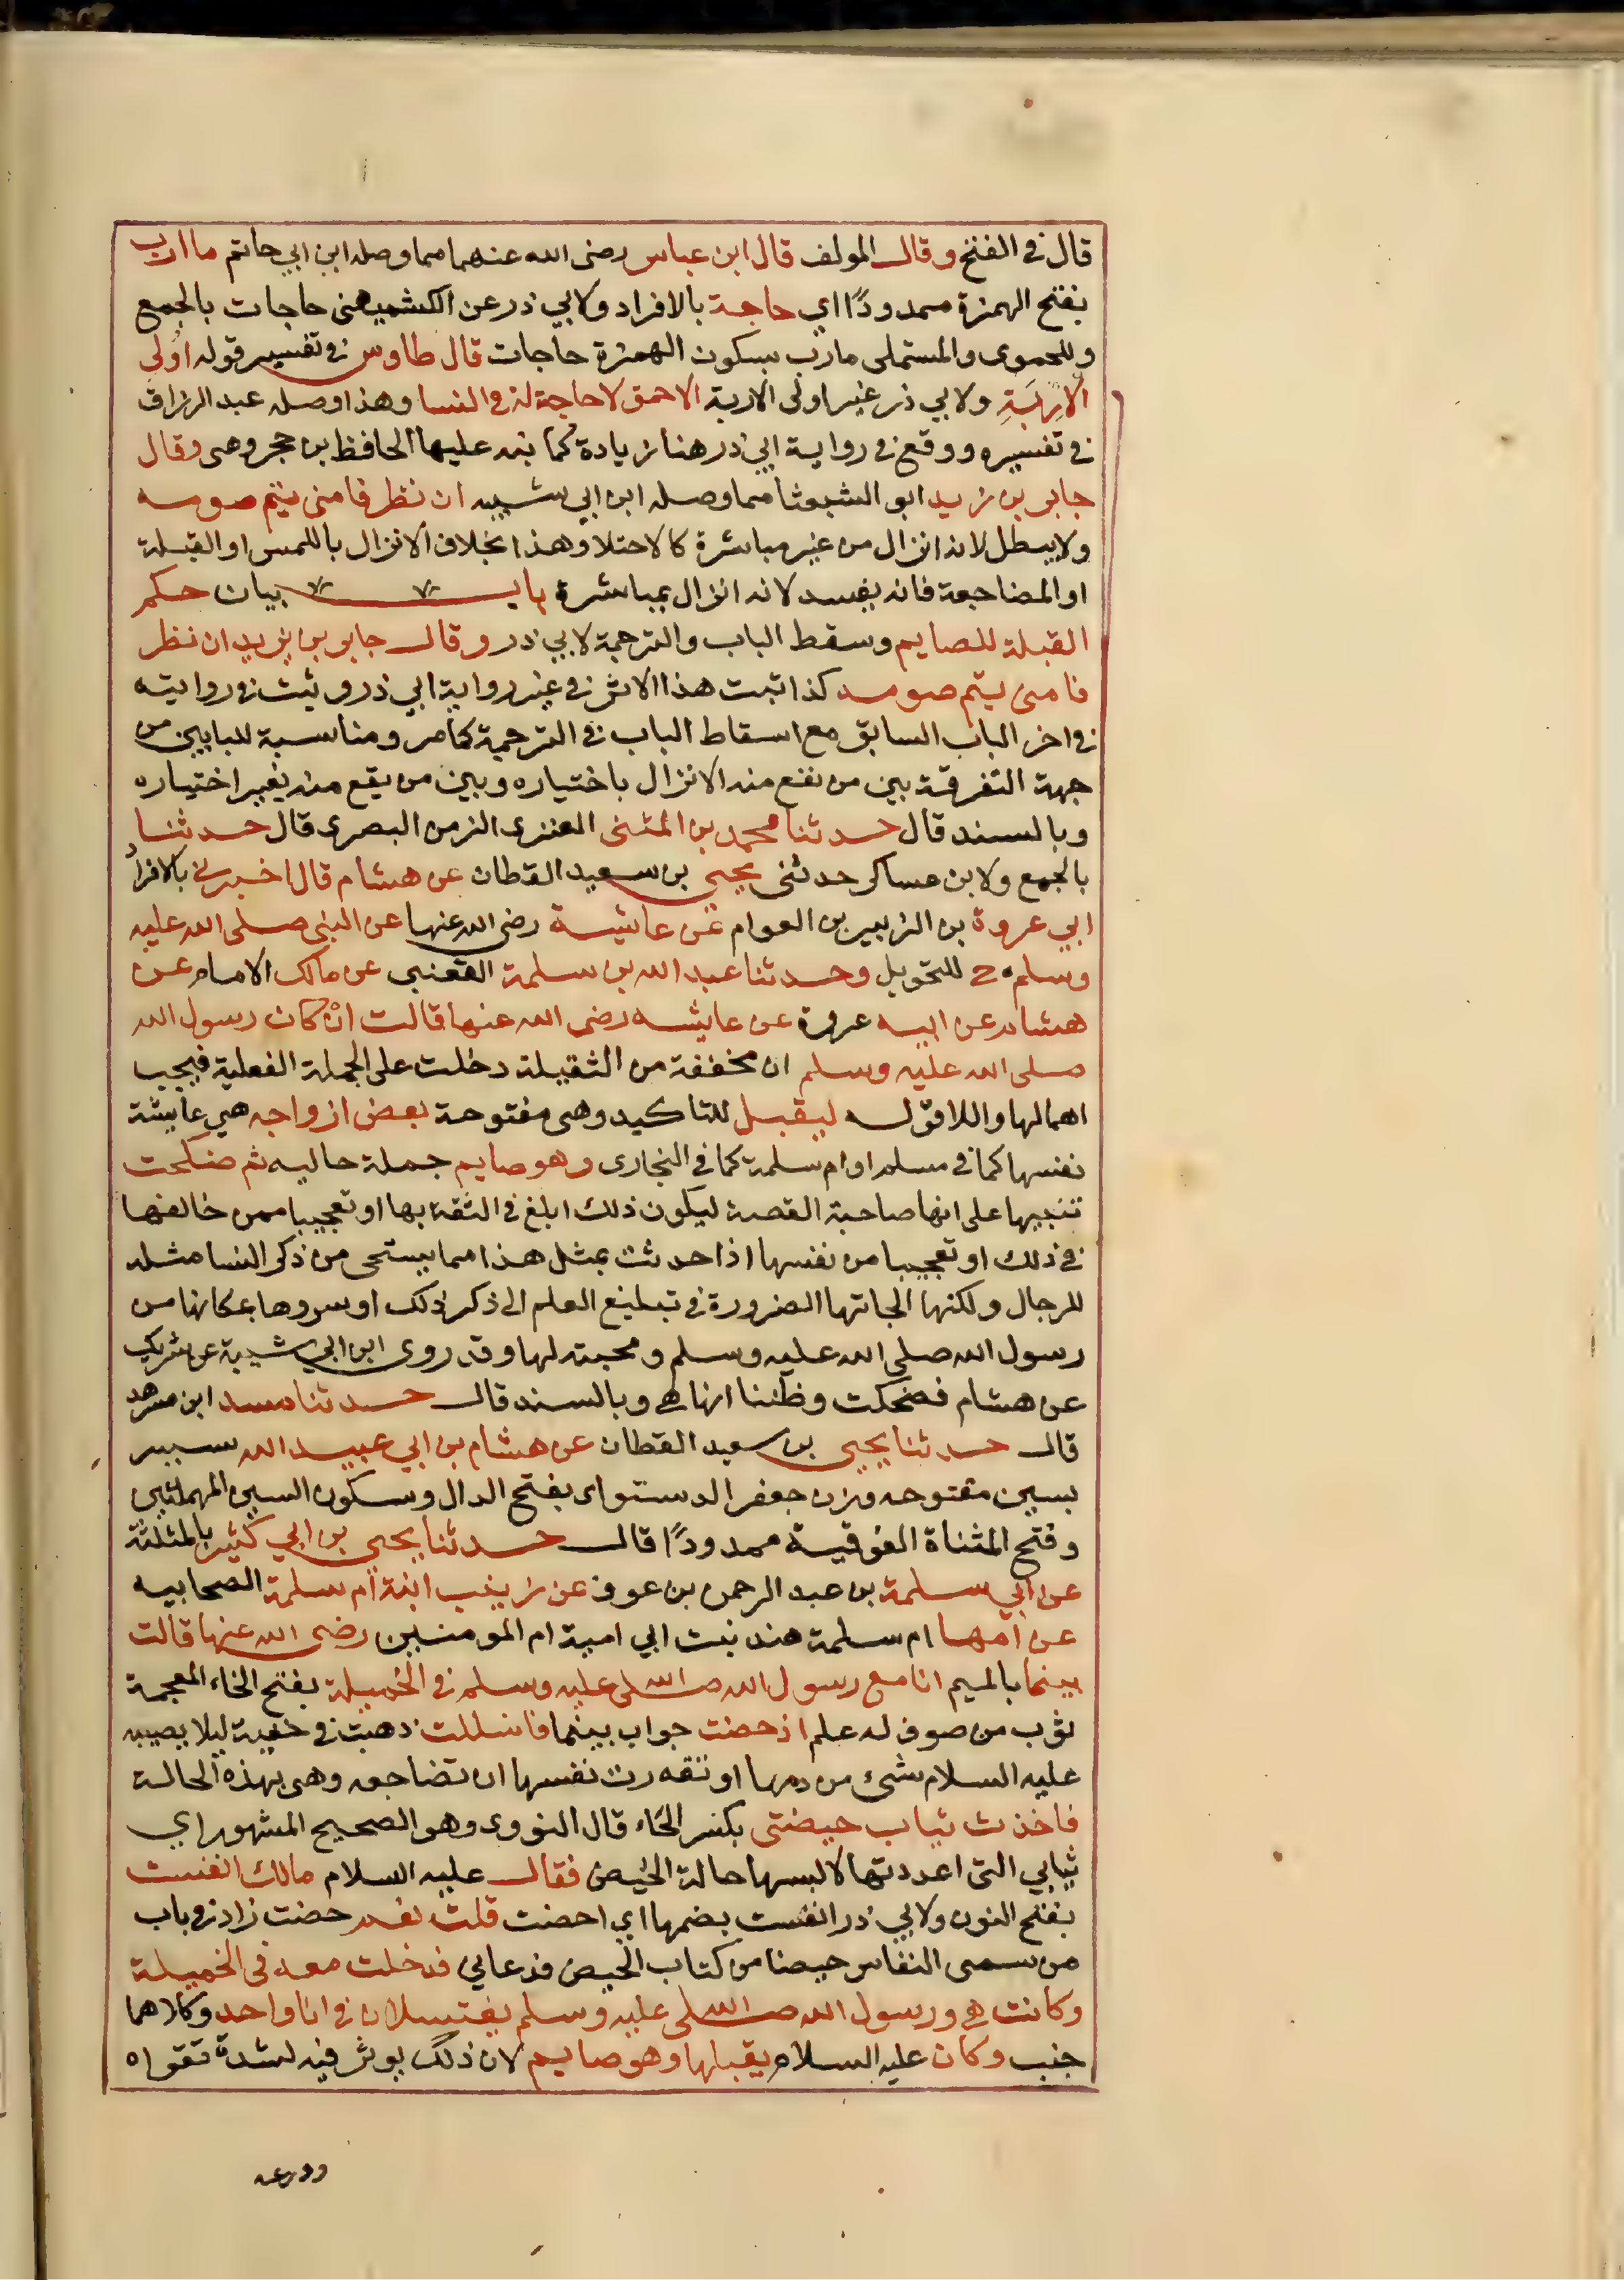 قال في الفتح وقال المولف قال ابن عباس رضى الله عنهما مما وصله ابن ابي حاتم ماارب
بفتح الهمزة ممدودًا اي حاجة بالافراد ولابي ذر عن الكشميهنى حاجات بالجمع
وللحموى والمستملى مارب بسكون الهمزة حاجات قال طاوس في تفسير قوله اولى
الاِرْبَةِ ولابي ذر غير اولى الاربة الاحمق لا حاجة له في النسا وهذا وصله عبد الرزاق
في تفسيره ووقع في رواية ابي ذر هنا زيادة كما نبه عليها الحافظ بن حجر وهى وقال
جابر بن زيد ابو الشعثا مما وصله ابن ابي شيبه ان نظر فامنى يتم صومه
ولايبطل لانه انزال من غير مباشرة كالاحتلا وهذا بخلاف الانزال باللمس او القبلة
او المضاجعة فانه يفسد لانه انزال بمباشرة باب بيان حكم
القبلة للصايم وسقط الباب والترجمة لابي ذر وقال جابر بن زيد ان نظر
فامنى يتم صومه كذا ثبت هذا الاثر في غير رواية ابي ذر ويثبت في روايته
في اخر الباب السابق مع اسقاط الباب في الترجمة كمامر ومناسبة للبابين من
جهة التفرقة بين من نقع منه الانزال باختياره وبين من يقع منه بغير اختياره
وبالسند قال حدثنا محمد بن المثنى العنزى الزمن البصرى قال حدثنا
بالجمع ولابن عساكر حدثنى يحيى بن سعيد القطان عن هشام قال اخبرني بالافراد
ابي عروة بن الزبير بن العوام عن عايشة رضى الله عنها عن النبى صلى الله عليه
وسلم ح للتحويل وحدثنا عبد الله بن سلمة القعنبى عن مالك الامام عن
هشام عن ابيه عروة عن عايشه رضى الله عنها قالت انْ كان رسول الله
صلى الله عليه وسلم ان مخففة من الثقيلة دخلت على الجملة الفعلية فيجب
اهمالها واللا قوله ليقبل للتاكيد وهى مفتوحة بعض ازواجه هي عايشة
نفسها كما في مسلم او ام سلمة كما في البخارى وهو صايم جملة حاليه ثم ضحكت
تنبيها على انها صاحبة القصة ليكون ذلك ابلغ في الثقة بها او تعجيبا ممن خالفها
في ذلك او تعجيبا من نفسها اذا حدثت بمثل هذا مما يستحى من ذكر النسا مثله
للرجال ولكنها الجاتها الضرورة في تبليغ العلم الى ذكر ذلك او سروها بمكانها من
رسول الله صلى الله عليه وسلم ومحبته لها وقد روى ابن ابي شيبة عن شريك
عن هشام فضحكت وظننا انها هى وبالسند قال حدثنا مسدد ابن مسرهد
قال حدثنا يحيى بن سعيد القطان عن هشام بن ابي عبيد الله سببر
بسين مفتوحه وزن جعفر الدستواى بفتح الدال وسكون السين المهملتين
وفتح المثناة الفوقية ممدودًا قال حدثنا يحيى بن ابي كثير بالمثلثة
عن ابي سلمة بن عبد الرحمن بن عوف عن زينب ابنة ام سلمة الصحابيه
عن امها ام سلمة هند بنت ابي امية ام المومنين رضى الله عنها قالت
بينما بالميم انا مع رسول الله صلى الله عليه وسلم في الخميلة بفتح الخاء المعجمة
ثوب من صوف له علم اذ حضت جواب بينما فانسللت ذهبت في خفية ليلا يصيبه
عليه السلام شئ من دمها او تقذرت نفسها ان تضاجعه وهى بهذه الحالة
فاخذت ثياب حيضتى بكسر الحاء قال النووى وهو الصحيح المشهور اي
ثيابي التى اعددتها لالبسها حالة الحيض فقال عليه السلام مالك انفست
بفتح النون ولابي ذر انفست بضمها اي احضت قلت نعم حضت زاد في باب
من سمى النفاس حيضا من كتاب الحيض فدعاني فدخلت معه في الخميلة
وكانت هى ورسول الله صلى الله عليه وسلم يغتسلان في انا واحد وكلاهما
جنب وكان عليه السلام يقبلها وهو صايم لان ذلك يوثر فيه لشدة تقواه
وورعه